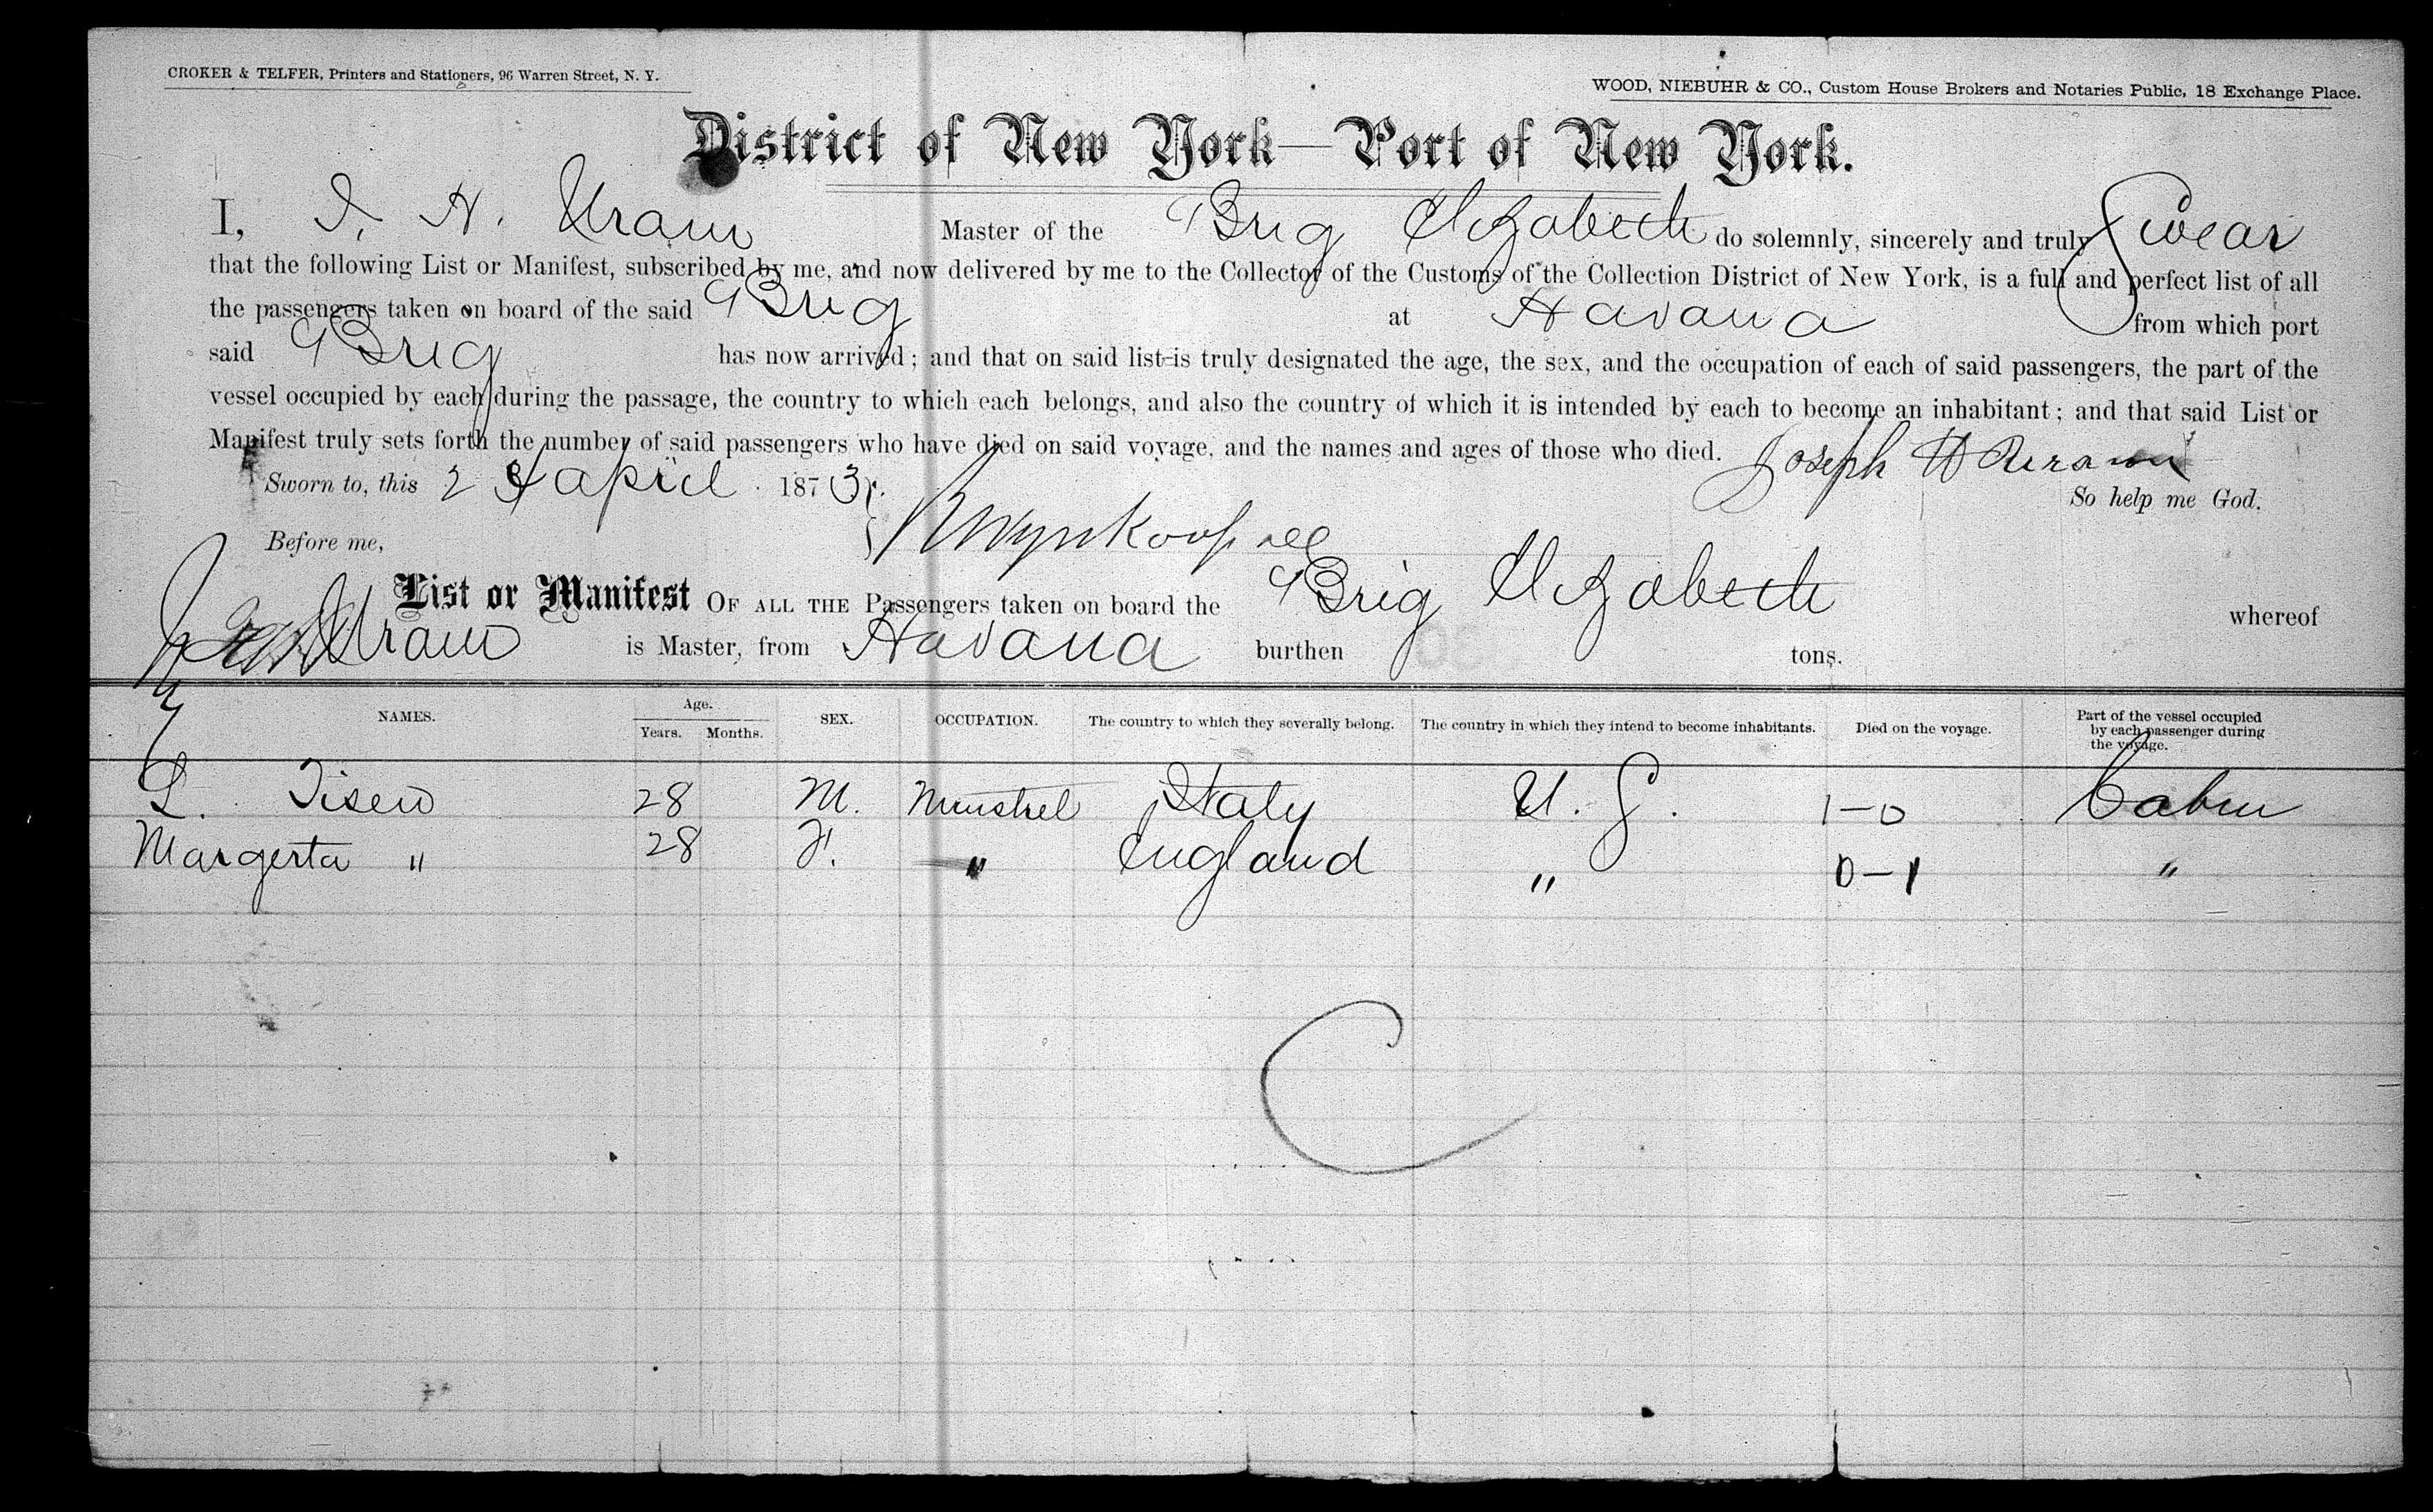 CROKER & TELFER, Printers and Stationers, 96 Warren Street, N. Y.
WOOD, NIEBUHR & CO., Custom House Brokers and Notaries Public, 18 Exchange Place.
District of New York—Port of New York.
I, J. H. Uram Master of the Brig Elizabeth do solemnly, sincerely and truly Swear
that the following List or Manifest, subscribed by me, and now delivered by me to the Collector of the Customs of the Collection District of New York, is a full and perfect list of all
the passengers taken on board of the said Brig at Havana from which port
said Brig has now arrived; and that on said list is truly designated the age, the sex, and the occupation of each of said passengers, the part of the
vessel occupied by each during the passage, the country to which each belongs, and also the country of which it is intended by each to become an inhabitant; and that said List or
Manifest truly sets forth the number of said passengers who have died on said voyage, and the names and ages of those who died. Joseph
Sworn to, this April 1873
So help me God.
Before me,
List or Manifest OF ALL THE Passengers taken on board the Brig Elizabeth whereof
Uram is Master, from Havana burthen tons.
NAMES. Age. Years. Months. SEX. OCCUPATION. The country to which they severally belong. The country in which they intend to become inhabitants. Died on the voyage. Part of the vessel occupied by each passenger during the voyage.
L. Tisen 28 M. Minstrel Italy U. S. 1-0 Cabin
Margerta " 28 F. " England " 0-1 "
C